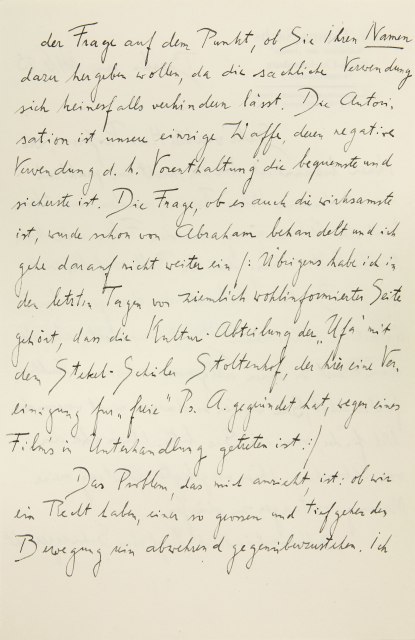 der Frage auf dem Punkt, ob Sie Ihren Namen
dazu hergeben wollen, da die sachliche Verwendung
sich keinesfalls verhindern lässt. Die Autori-
sation ist unsere einzige Waffe, deren negative
Verwendung d. h. Vorenthaltung die bequemste und
sicherste ist. Die Frage, ob es auch die wirksamste
ist, wurde schon von Abraham behandelt und ich
gehe darauf nicht weiter ein /: Übrigens habe ich in
den letzten Tagen von ziemlich wohlinformierter Seite
gehört, dass die Kultur-Abteilung der „Ufa" mit
dem Stekel-Schüler Stoltenhof, der hier eine Ver-
einigung für „freie" Ps. A. gegründet hat, wegen eines
Films in Unterhandlung getreten ist. :/
Das Problem, das mich anzieht, ist: ob wir
ein Recht haben, einer so grossen und tiefgehenden
Bewegung rein abwehrend gegenüberzustehen. Ich